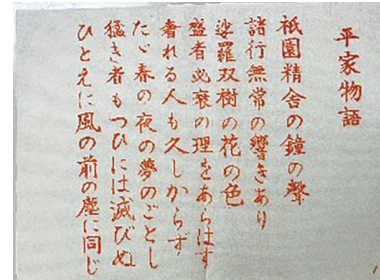 平家物語
祇園精舎の鐘の聲
諸行無常の響きあり
沙羅双樹の花の色
盛者必衰の理をあらはす
奢れる人も久しからず
たゞ春の夜の夢のごとし
猛き者もつひには滅びぬ
ひとえに風の前の塵に同じ